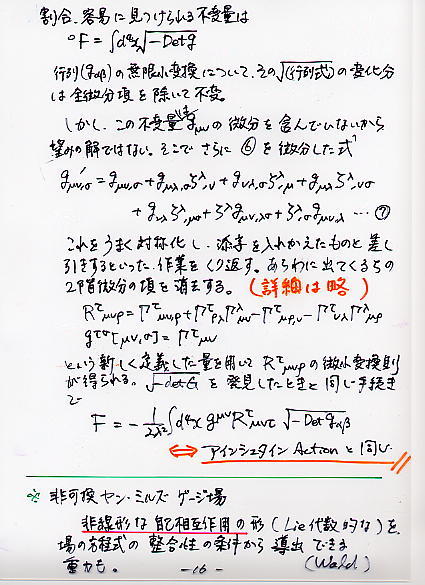 割合、容易に見つけられる不変量は
°F = ∫d⁴x√-Det g
行列(gαβ)の無限小変換について、その√(行列式)の変化分
は全微分項を除いて不変。
しかし、この不変量は gμν の微分を含んでいないから
望みの解ではない。そこで さらに ⑥ を微分した式
gμν,σ = gμν,σ + gμλ,σ ξλ,ν + gνλ,σ ξλ,μ + gμλ ξλ,νσ
+ gνλ ξλ,μσ + ξλ gμν,λσ + ξλ,σ gμν,λ … ⑦
これをうまく対称化し、添字を入れかえたものと差し
引きするといった、作業をくり返す。あらわに出てくるξの
2階微分の項を消去する。(詳細は略)
Rτμνρ = Γτμν,ρ + Γτρλ Γλμν − Γτμρ,ν − Γτνλ Γλμρ
gτσ[μν,σ] = Γτμν
という新しく定義した量を用いて Rτμνρ の微小変換則
が得られる。√-det G を発見したときと同じ手続き
で
F = − 1/2λ² ∫d⁴x gμν Rτμντ √-Det gαβ
⇔ アインシュタイン Action と同じ
※ 非可換 ヤン・ミルズ ゲージ場
非線形な自己相互作用の形 (Lie代数的な)を、
場の方程式の整合性の条件から導出できる
重力も。 (Wald)
-16-